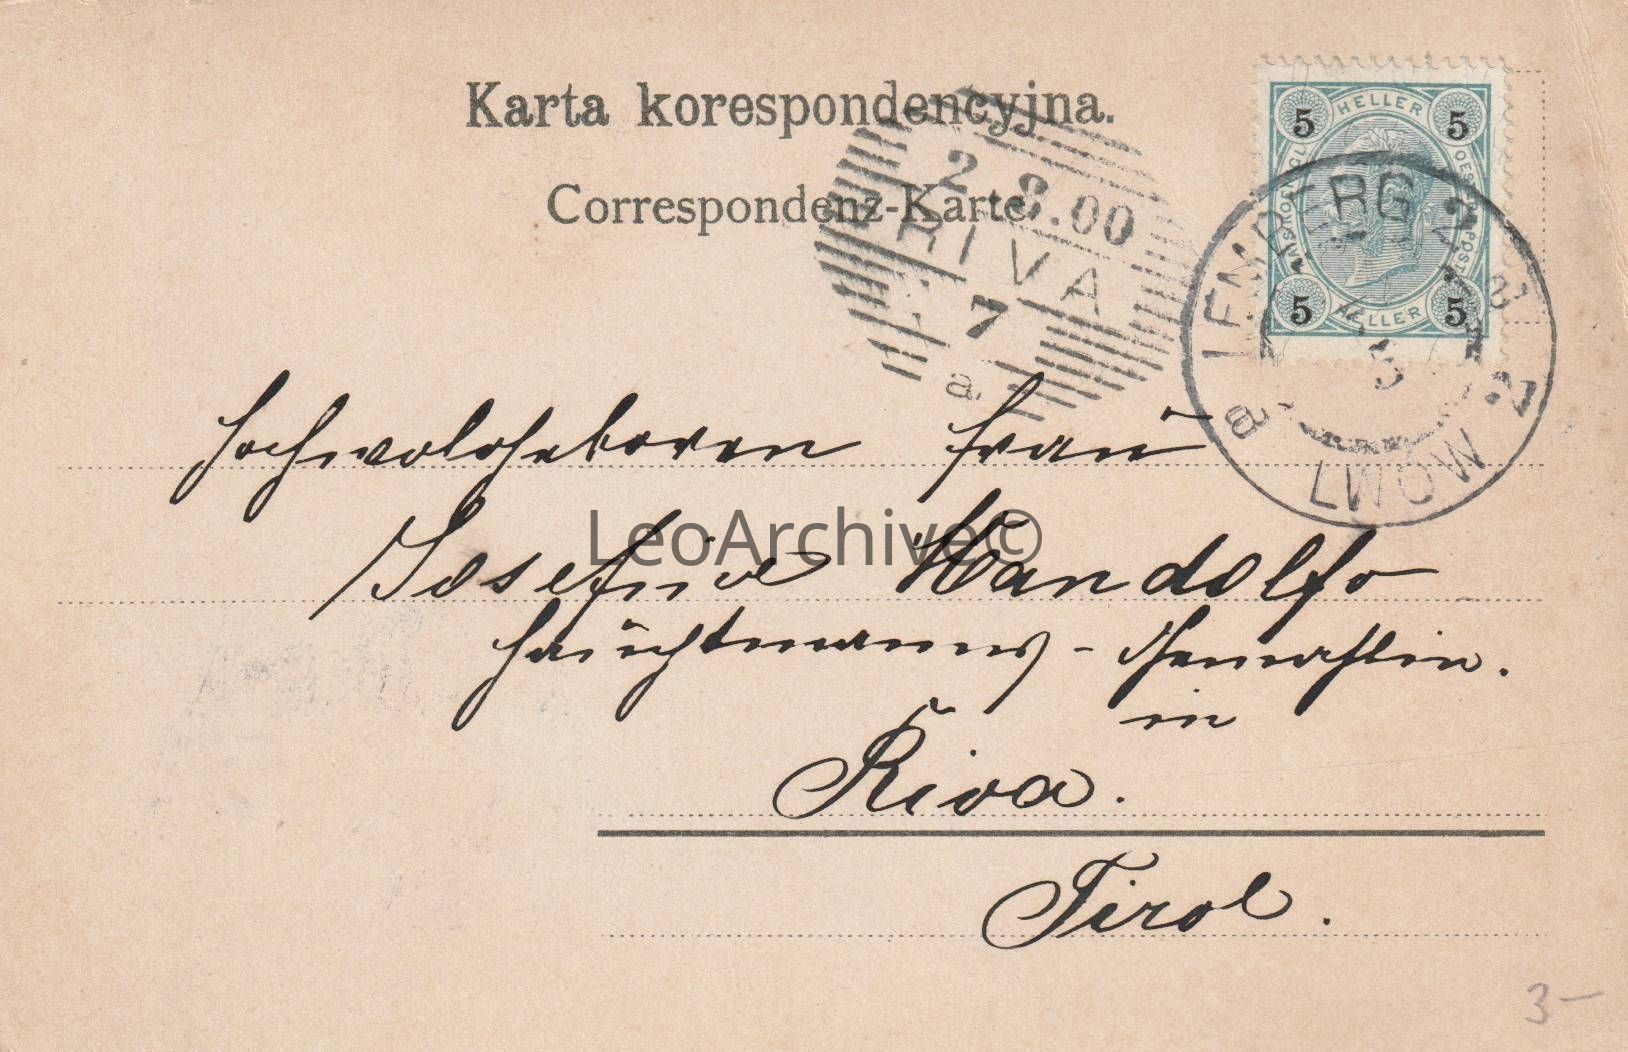 Karta korespondencyjna.
Correspondenz-Karte.
5 HELLER 5
5 HELLER 5
2 8.00
RIVA
7
a
LEMBERG 2
a LWOW 2
Hochwolgeboren Frau
LeoArchive©
Josefine
Hauptmanns-Gemahlin.
in
Riva.
Tirol.
3–